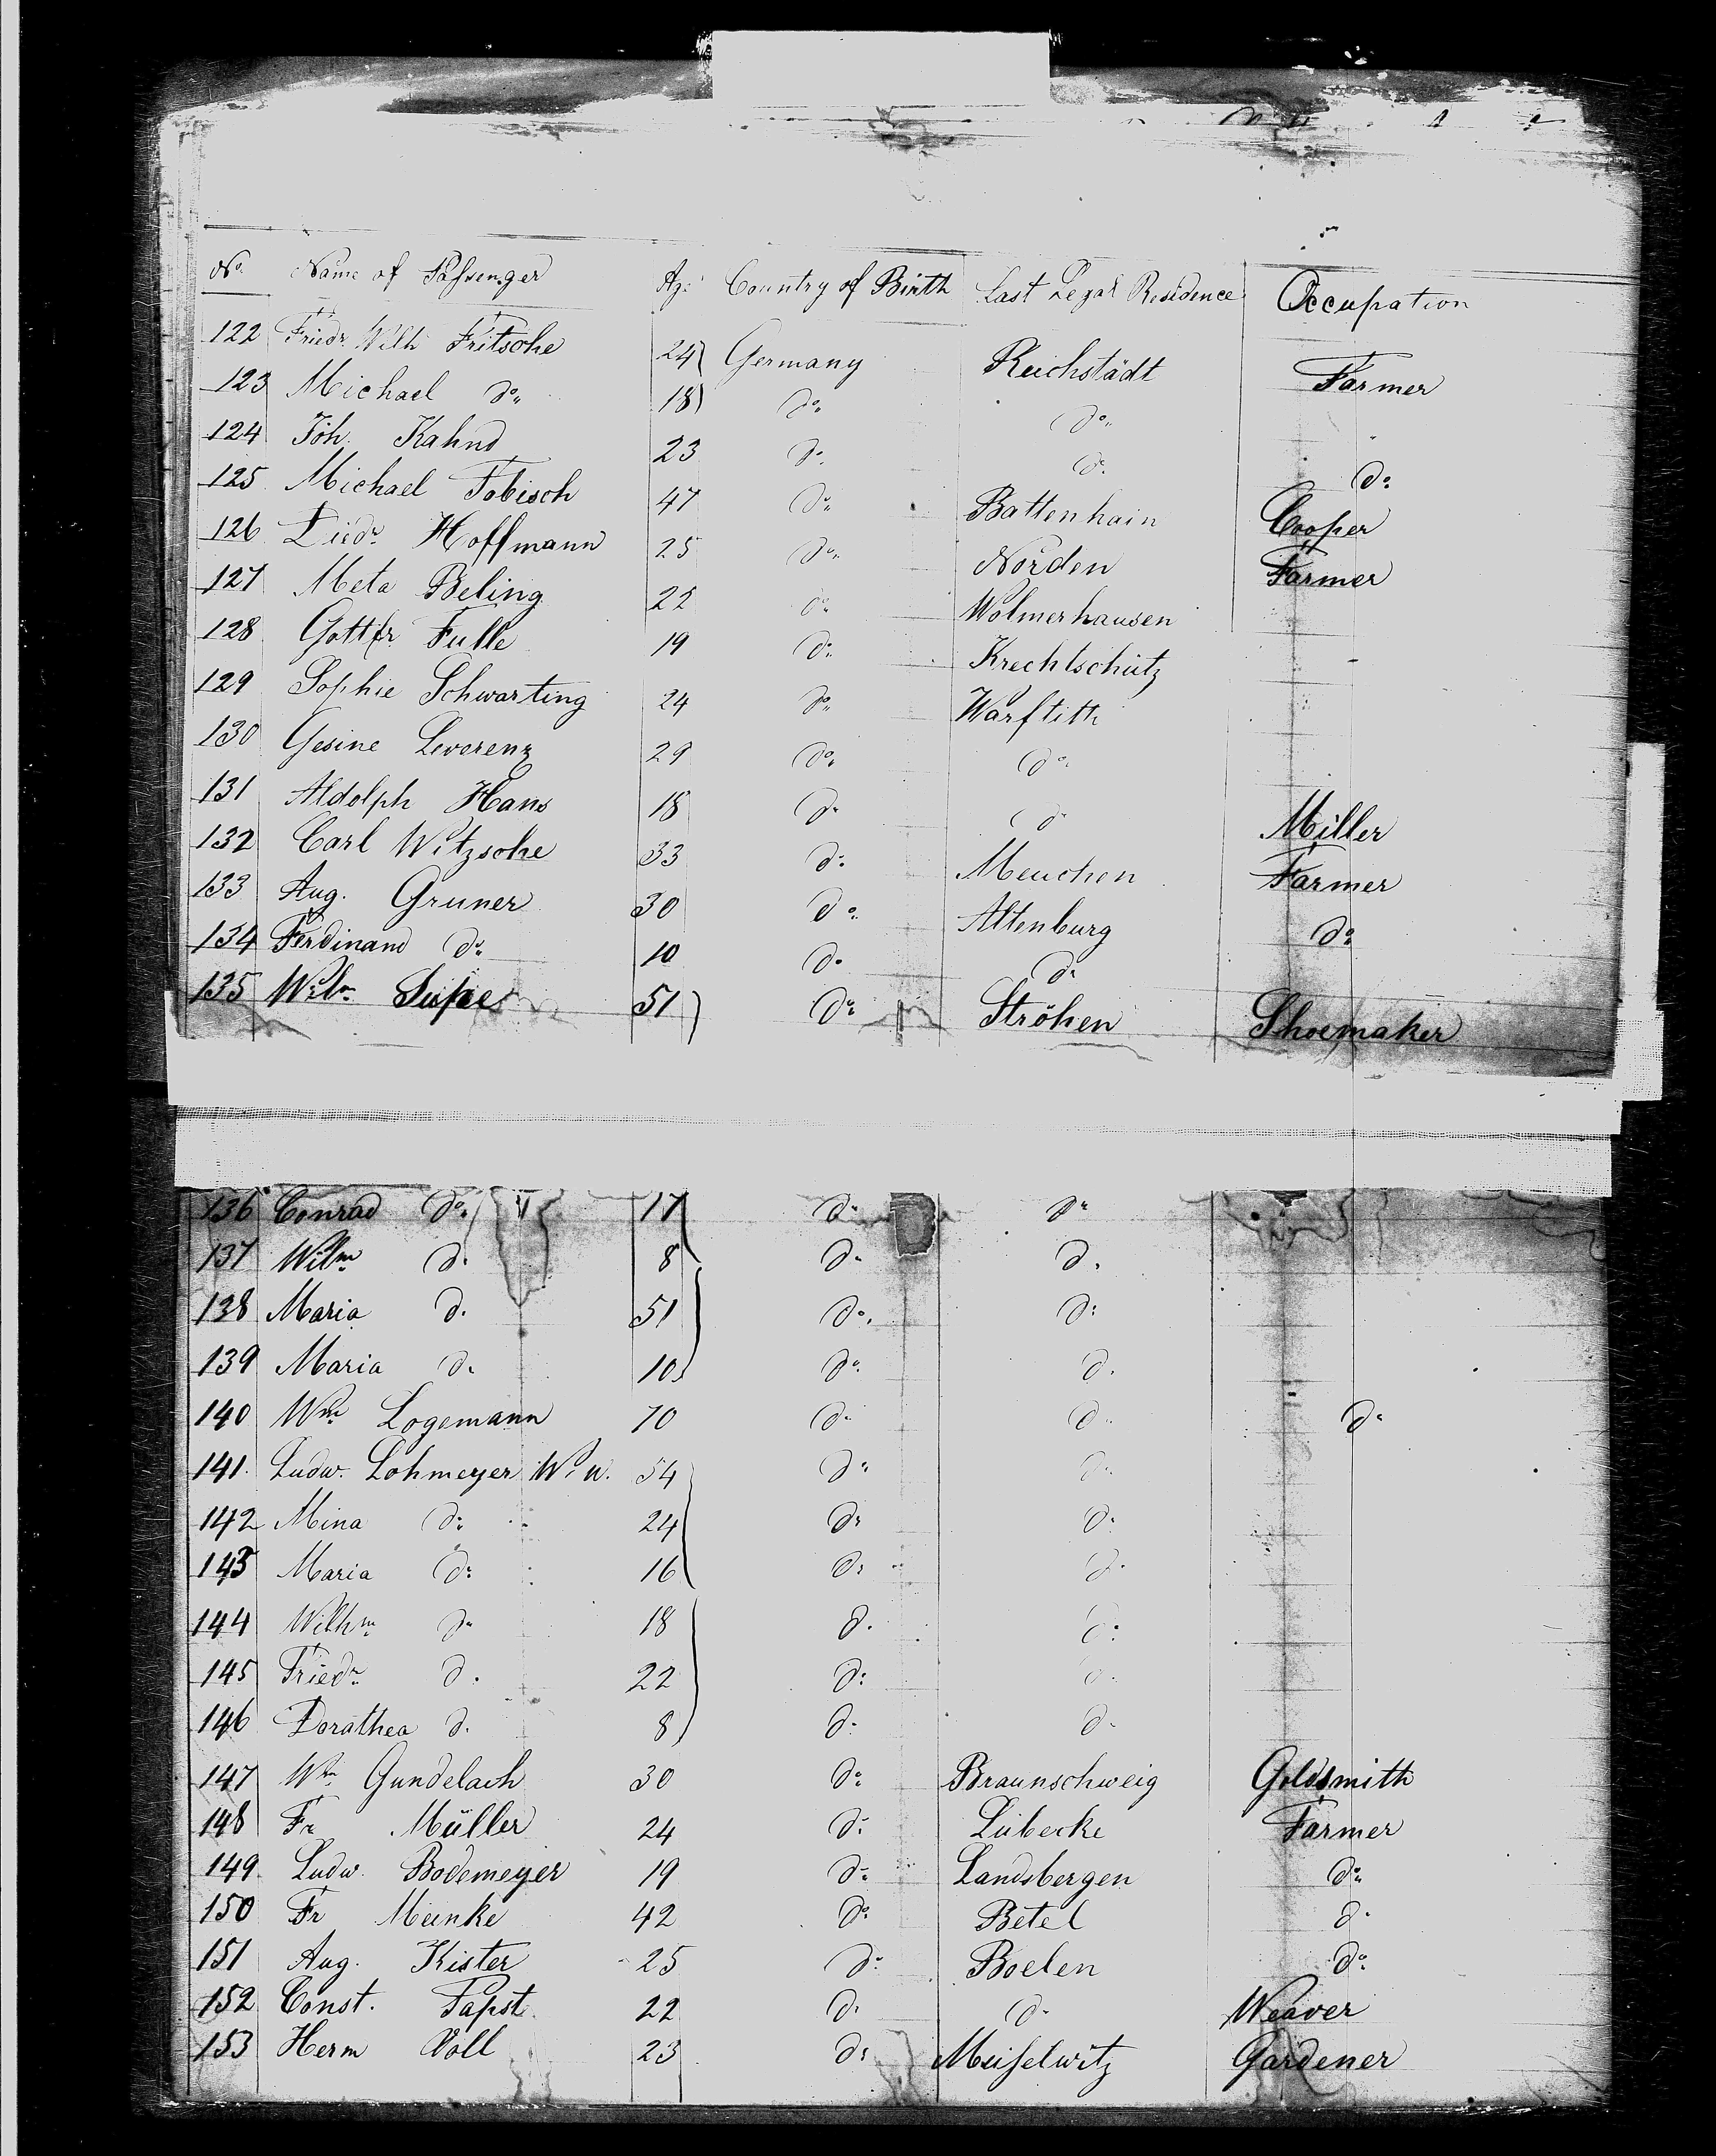 No. Name of Passenger Age Country of Birth Last Legal Residence Occupation
122 Friedr. Wilh Fritsche 24 Germany Reichstädt Farmer
123 Michael do 18 do do
124 Joh. Kahnd 23 do do do
125 Michael Tobisch 47 do Battenhain Cooper
126 Diedr. Hoffmann 25 do Norden Farmer
127 Meta Beling 22 do Wolmerhausen
128 Gottfr. Fulle 19 do Krechtschütz
129 Sophie Schwarting 24 do Warfleth
130 Gesine Leverenz 29 do do
131 Aldolph Hans 18 do do Miller
132 Carl Witzsche 33 do Meuchen Farmer
133 Aug. Gruner 30 do Altenburg do
134 Ferdinand do 10 do do
135 Wilm. 51 do Ströhen Shoemaker
136 Conrad do 17 do do
137 Willm do 8 do do
138 Maria do 51 do do
139 Maria do 10 do do
140 Wm Logemann 70 do do do
141. Ludw. Lohmeyer 54 do do
142 Mina do 24 do do
143 Maria do 16 do do
144 Wilhm do 18 do do
145 Friedr. do 22 do do
146 Dorathea do 8 do do
147 Wm Gundelach 30 do Braunschweig Goldsmith
148 Fr Müller 24 do Lübecke Farmer
149 Ludw. Bodemeyer 19 do Landsbergen do
150 Fr Meinke 42 do Betel do
151 Aug. Kister 25 do Boelen do
152 Const. Papst 22 do do Weaver
153 Herm Voll 23 do Meiselwitz Gardener